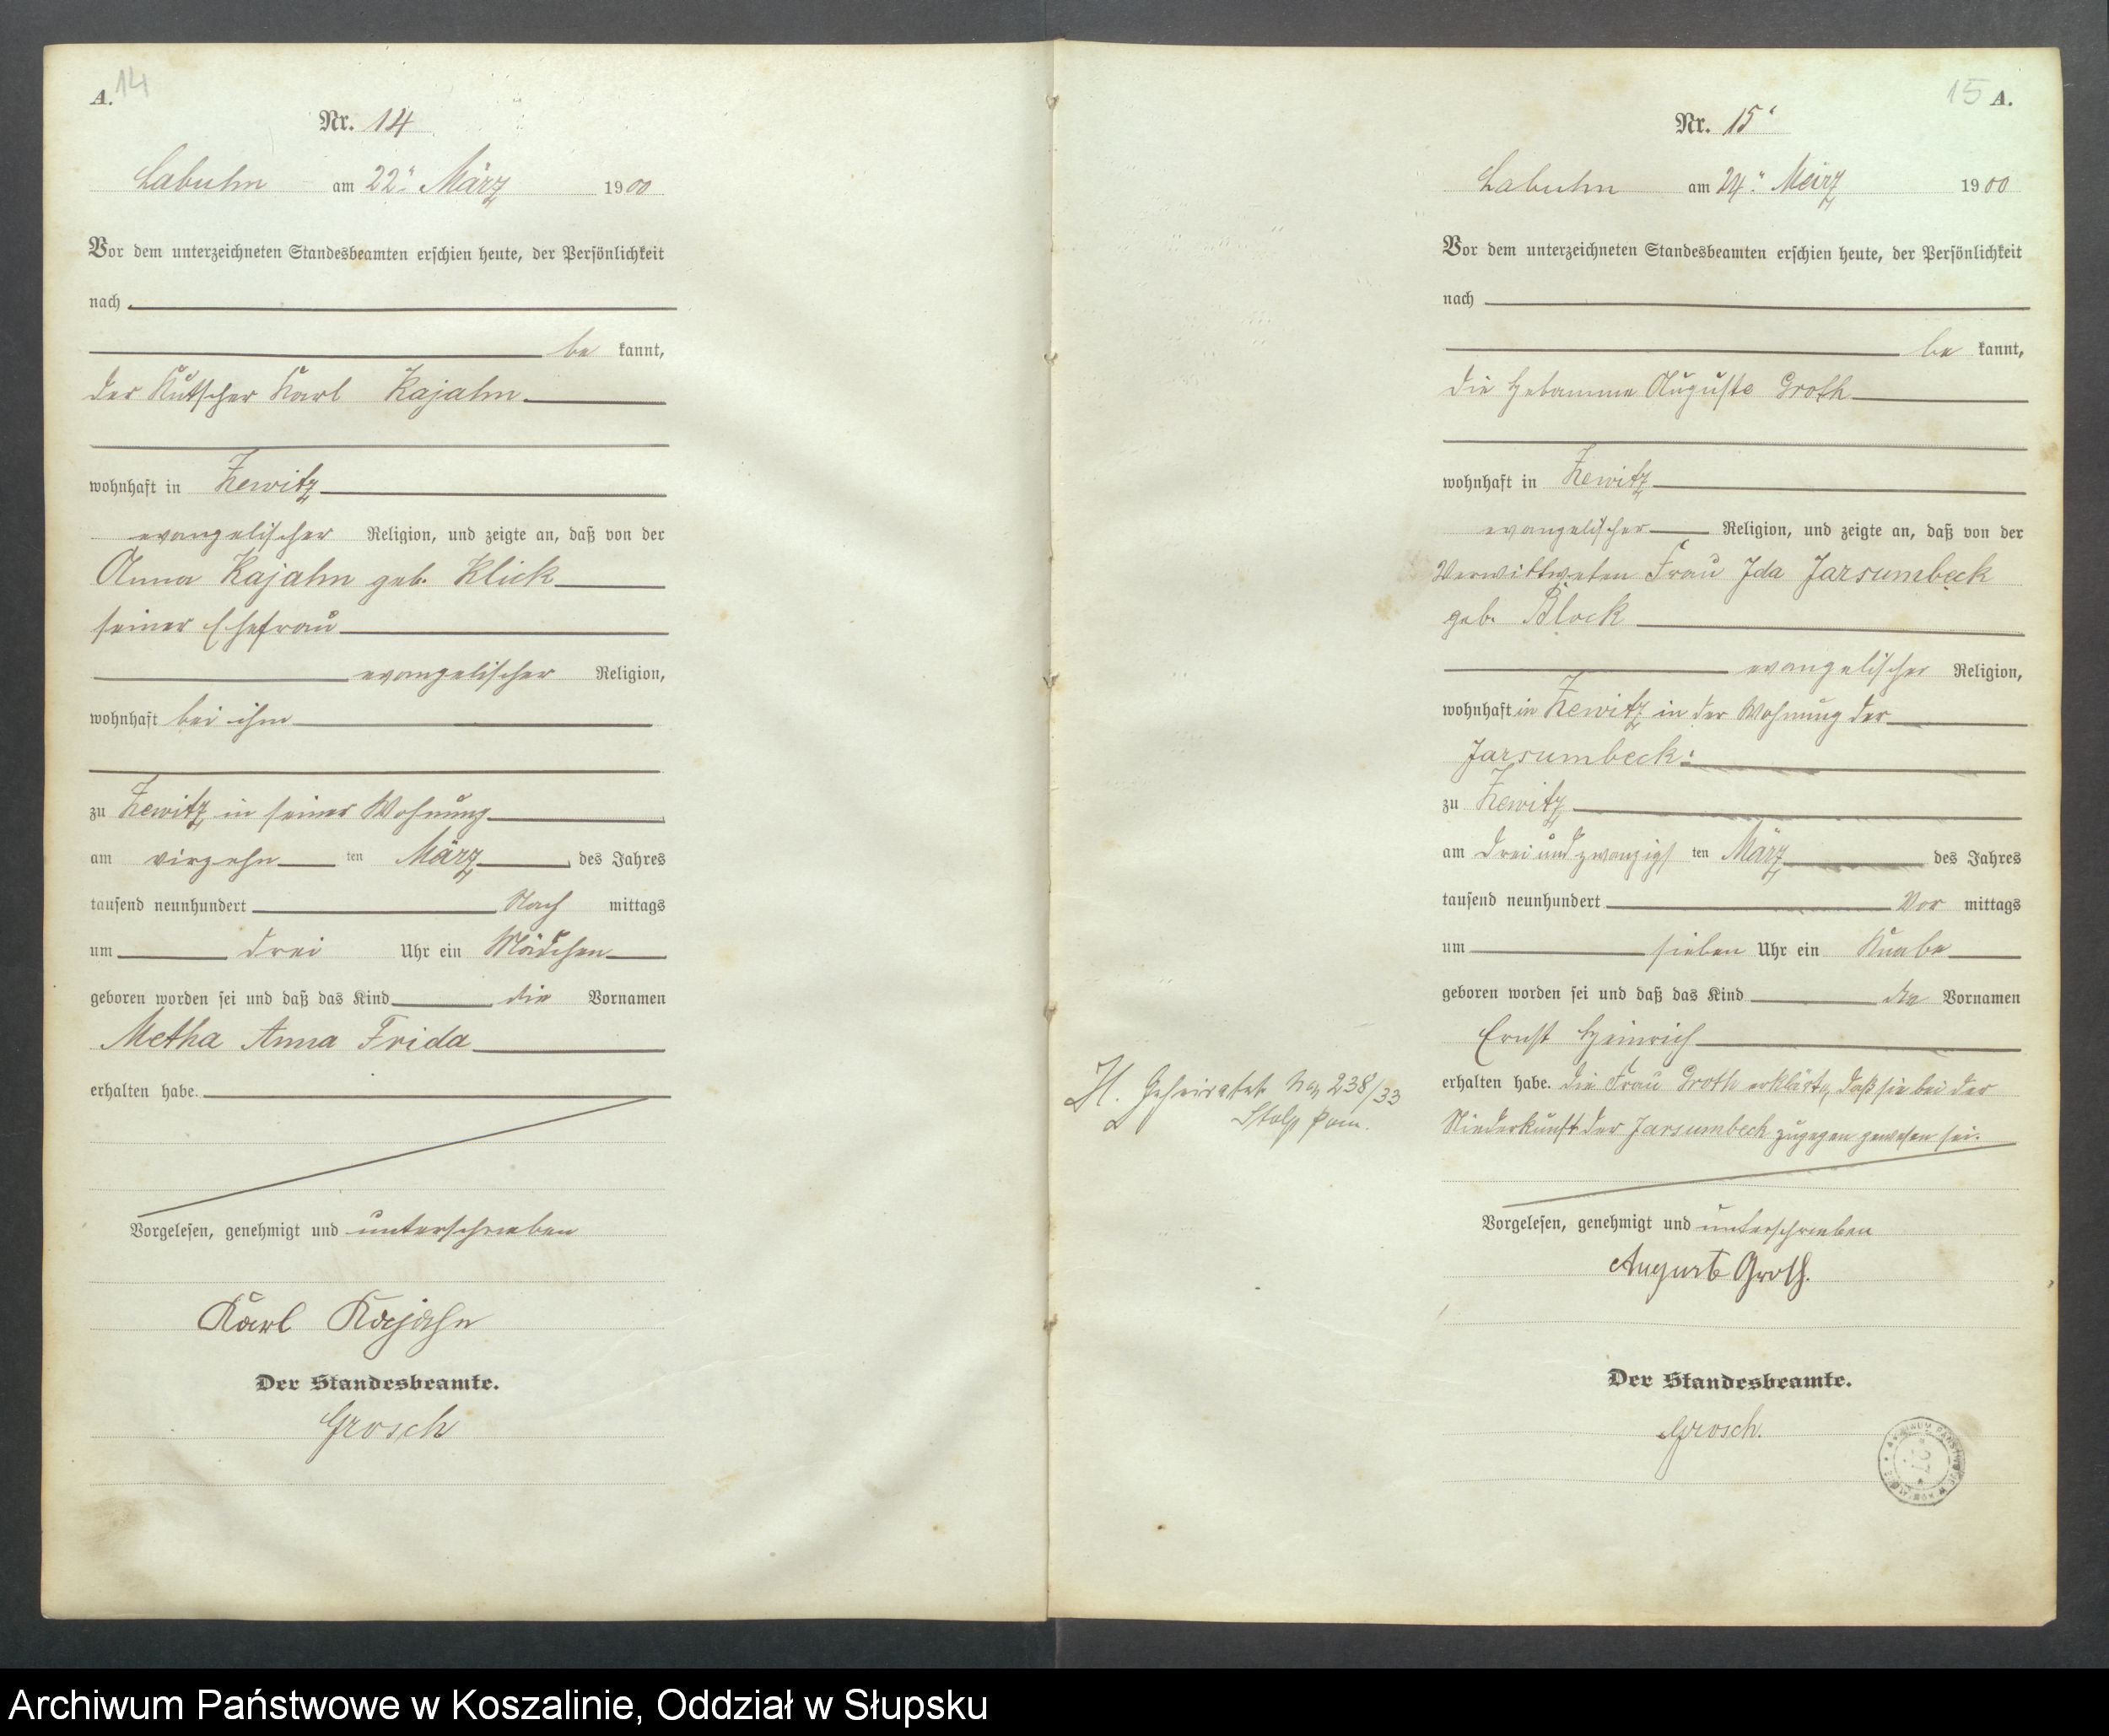 A. 14
Nr. 14
Labuhn am 22. März 1900
Vor dem unterzeichneten Standesbeamten erschien heute, der Persönlichkeit
nach
be kannt,
der Kutscher Karl Kajahn
wohnhaft in Zewitz
evangelischer Religion, und zeigte an, daß von der
Anna Kajahn geb. Klick
seiner Ehefrau
evangelischer Religion,
wohnhaft bei ihm
zu Zewitz in seiner Wohnung
am vierzehn ten März des Jahres
tausend neunhundert Nach mittags
um drei Uhr ein Mädchen
geboren worden sei und daß das Kind die Vornamen
Metha Anna Frida
erhalten habe.
Vorgelesen, genehmigt und unterschrieben
Karl Kajahn
Der Standesbeamte.
Grosch
15 A.
Nr. 15
Labuhn am 24. März 1900
Vor dem unterzeichneten Standesbeamten erschien heute, der Persönlichkeit
nach
be kannt,
die Hebamme Auguste Groth
wohnhaft in Zewitz
evangelischer Religion, und zeigte an, daß von der
Verwittweten Frau Ida Jarsumbeck
geb. Block
evangelischer Religion,
wohnhaft in Zewitz in der Wohnung der
Jarsumbeck
zu Zewitz
am dreiundzwanzigs ten März des Jahres
tausend neunhundert Vor mittags
um sieben Uhr ein Knabe
geboren worden sei und daß das Kind die Vornamen
Ernst Heinrich
erhalten habe. Die Frau Groth erklärte, daß sie bei der
Niederkunft der Jarsumbeck zugegen gewesen sei.
H. Geheiratet No 238/33
Stolp Pom.
Vorgelesen, genehmigt und unterschrieben
August Groth.
Der Standesbeamte.
Grosch.
Archiwum Państwowe w Koszalinie, Oddział w Słupsku